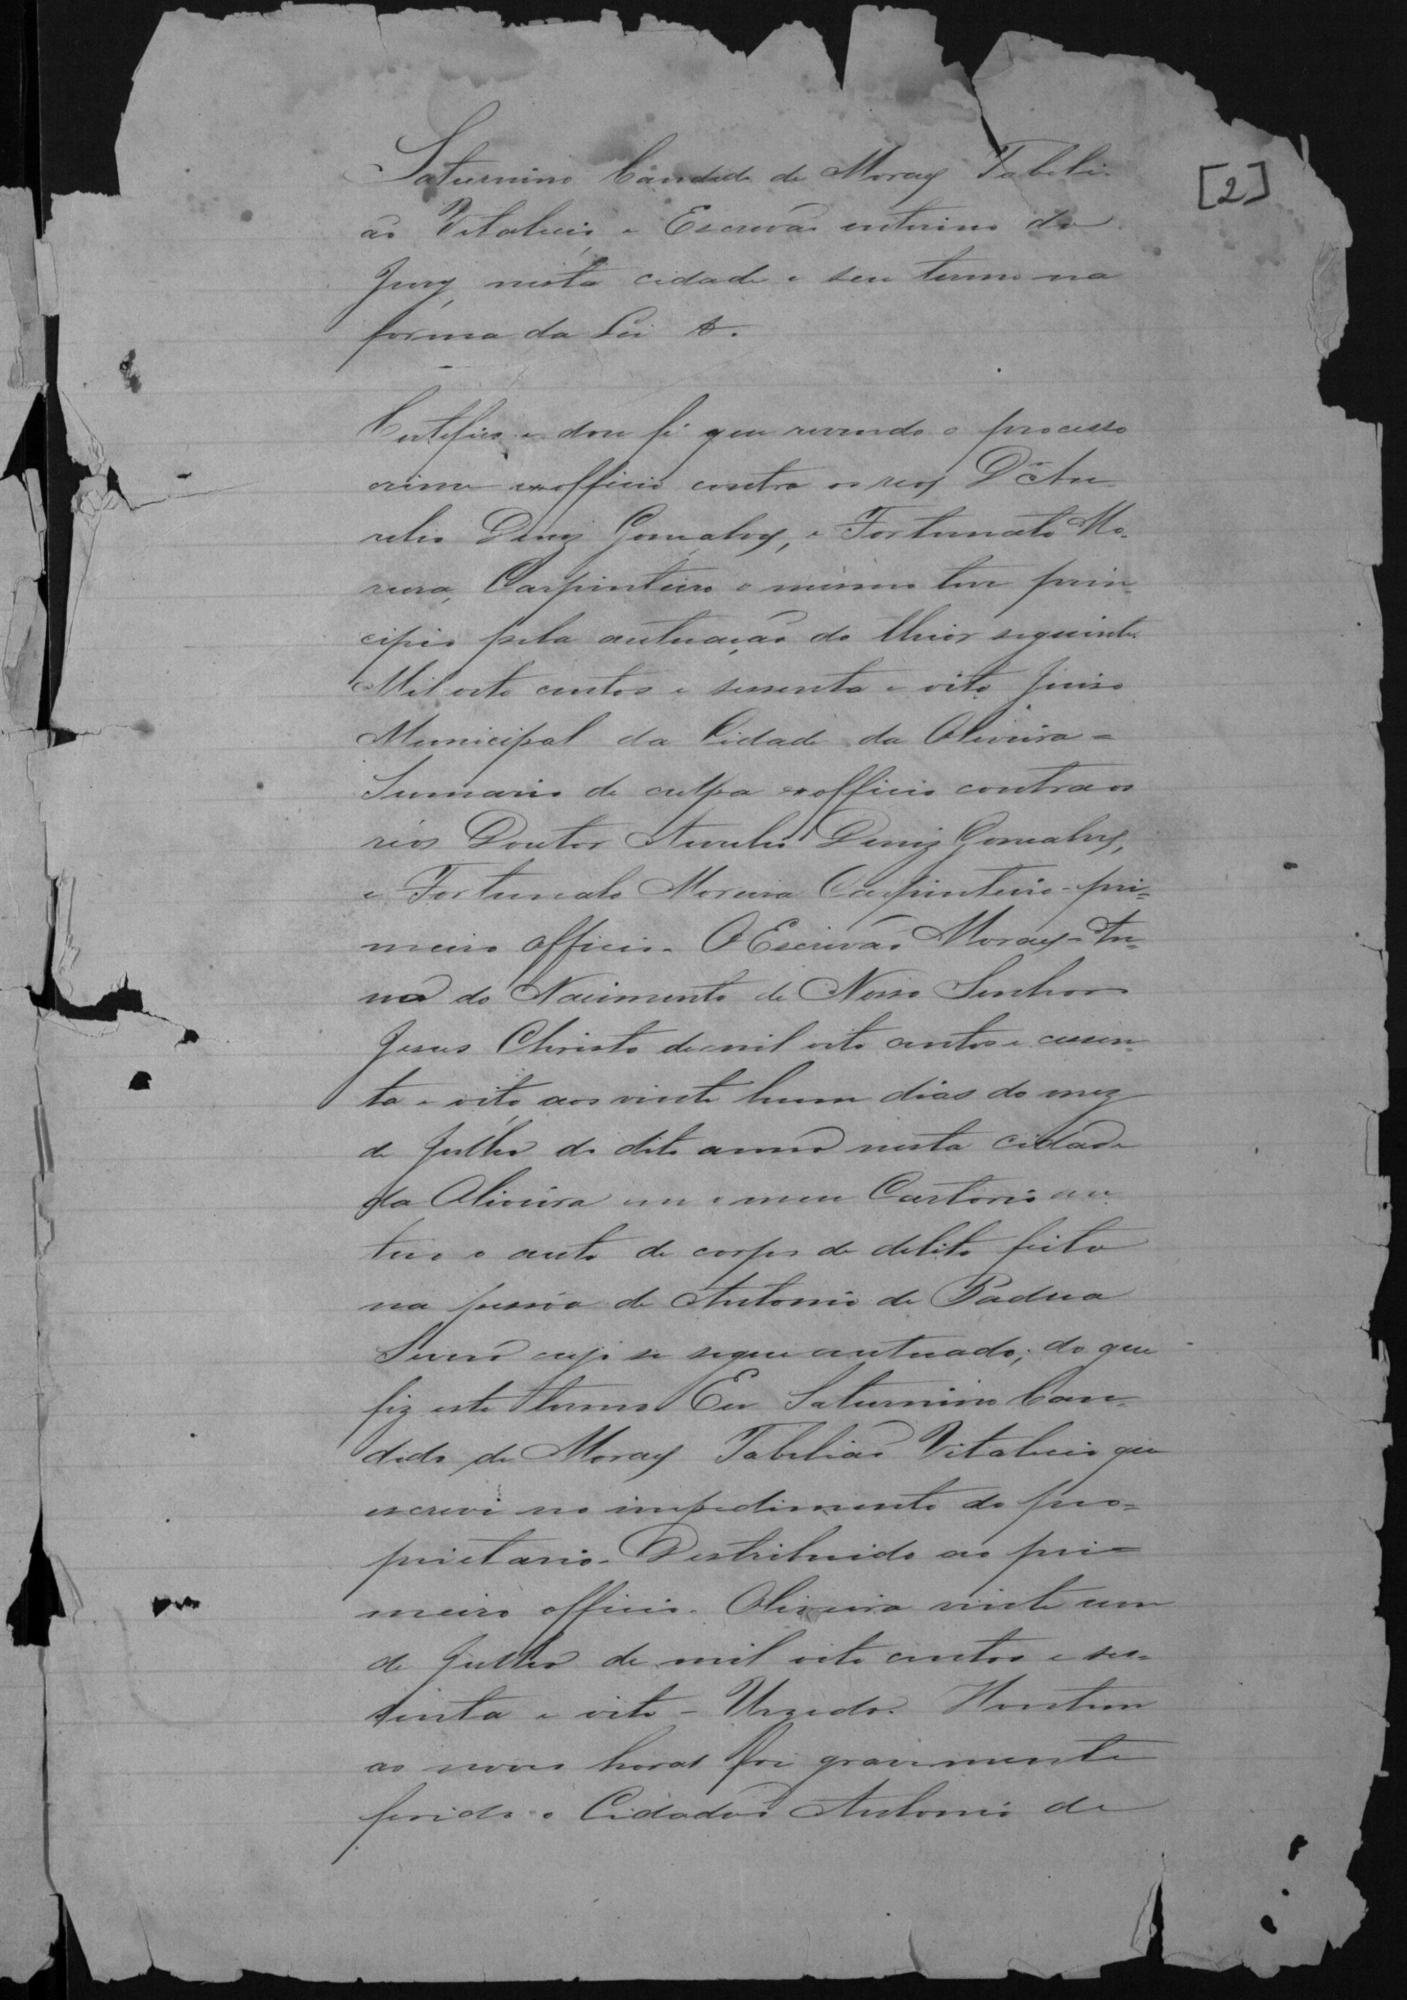 [2]
Saturnino Candido de Moraes Tabeli-
ão Vitalicio, e Escrivão interino do
Jury, nesta cidade e seu termo na
forma da Lei &.
Certefico e dou fé que revendo o processo
crime exofficio contra os reos Dr. Au-
relio Deniz Gonçalves, e Fortunato Mo-
reira, Carpinteiro o mesmo teve prin-
cipio pela autuação do theor seguinte.
Mil oito centos e sessenta e oito Juiso
Municipal da Cidade da Oliveira =
Summario de culpa exofficio contra os
réos Doutor Aurelio Deniz Gonçalves,
e Fortunato Moreira Carpinteiro - pri=
meiro officio. O Escrivão Moraes - An=
no do Nacimento de Nosso Senhor
Jesus Christo de mil oito centos e cessen-
ta e oito, aos vinte hum dias do mez
de Julho do dito anno nesta cidade
da Oliveira em o meu Cartorio au
tuo o auto de corpo de delito feito
na pessôa de Antonio de Padua
Severo cujo se segue autuado; do que
fiz este termo Eu Saturnino Can-
dido de Moraes Tabelião Vitalicio que
escrevi no impedimento do pro=
prietario. Destribuido ao pri=
meiro officio. Oliveira vinte um
de Julho de mil oito centos e ses-
senta e oito - Urzedo. Hontem
as nove horas foi gravemente
ferido o Cidadão Antonio de